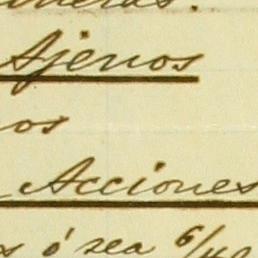 Ajenos
os
Acciones
s ó sea 6/40